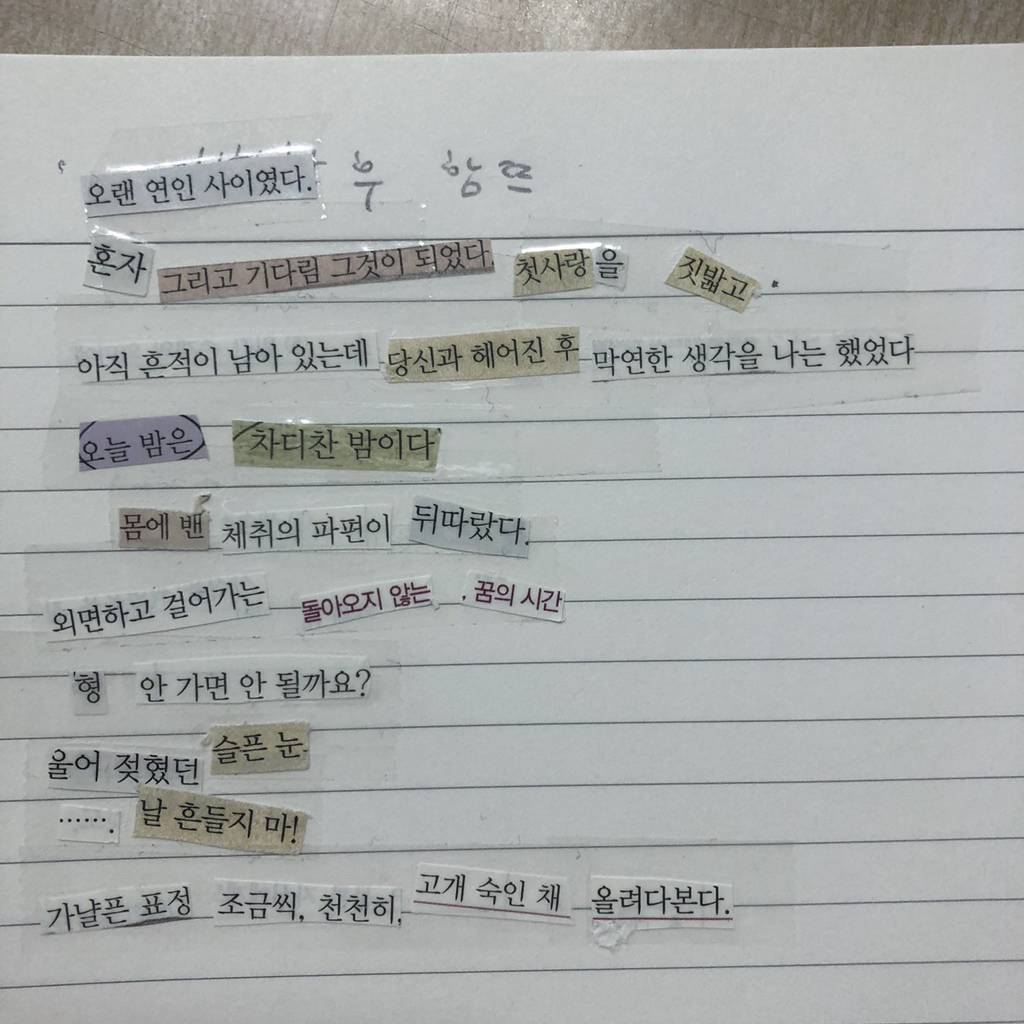 오랜 연인 사이였다.
혼자 그리고 기다림 그것이 되었다. 첫사랑을 짓밟고.
아직 흔적이 남아 있는데 당신과 헤어진 후 막연한 생각을 나는 했었다
오늘 밤은 차디찬 밤이다
몸에 밴 체취의 파편이 뒤따랐다.
외면하고 걸어가는 돌아오지 않는 , 꿈의 시간
형 안 가면 안 될까요?
울어 젖혔던 슬픈 눈
……. 날 흔들지 마!
가냘픈 표정 조금씩, 천천히, 고개 숙인 채 올려다본다.